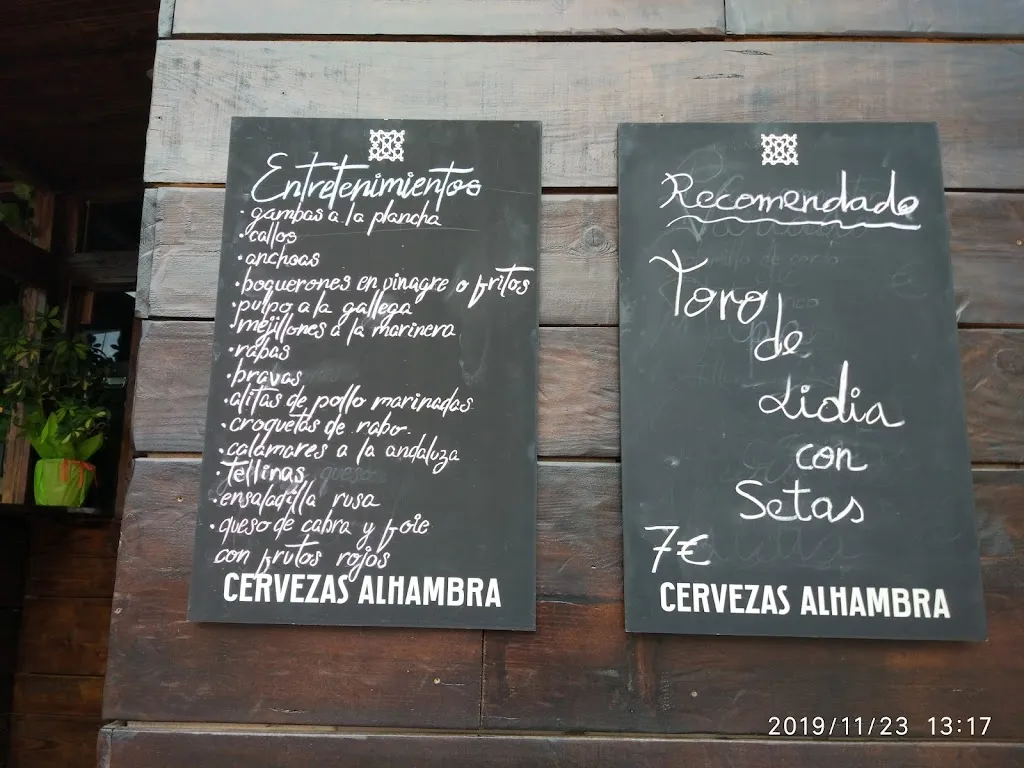 Entretenimientos
· gambas a la plancha
· callos
· anchoas
· boquerones en vinagre o fritos
· pulpo a la gallega
· mejillones a la marinera
· rabas
· bravas
· alitas de pollo marinadas
· croquetas de rabo.
· calamares a la andaluza
· tellinas
· ensaladilla rusa
· queso de cabra y foie
con frutos rojos
CERVEZAS ALHAMBRA
Recomendado
Toro
de
Lidia
con
Setas
7€
CERVEZAS ALHAMBRA
2019/11/23 13:17